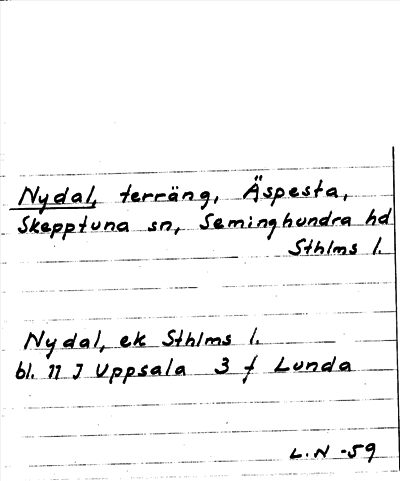 Nydal, terräng, Äspesta,
Skepptuna sn, Seminghundra hd
Sthlms l.
Nydal, ek Sthlms l.
bl. 11 J Uppsala 3 f Lunda
L.N -59